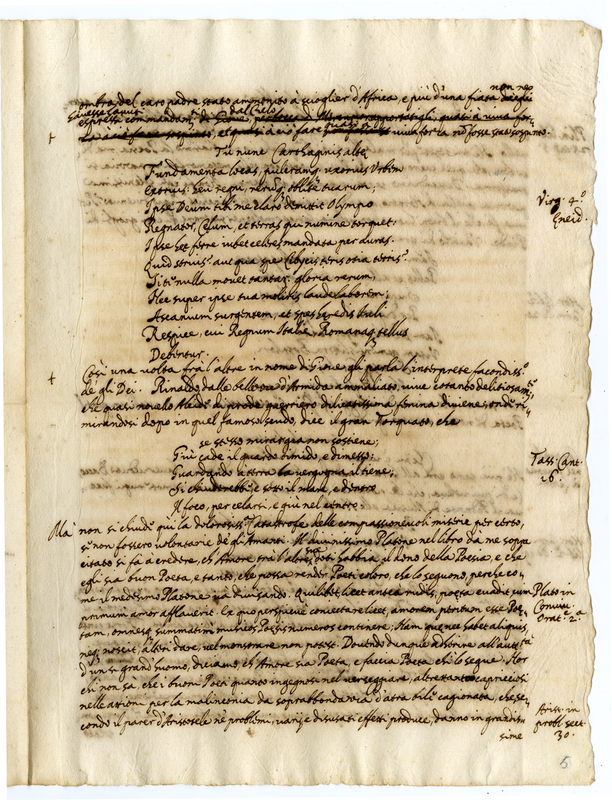 non ne
ombra del caro padre stato ammonito à scioglier d'Africa, e più d'una fiata
espressi commandam.ti di Giove,
viva forza nõ fosse stato sospinto.
Tu nunc Carthaginis altæ
Fundamenta locas, pulcramq. uxorius Urbem
Extruis: heu regni, rerumq. oblite tuarum;
Ipse Deum tibi me claro demittit Olympo
Regnator, Celum, et terras qui numine torquet:
Ipse hæc ferre iubet celeres mandata per auras.
Quid struis? aut qua spe Libycis teris otia terris?
Si te nulla movet tantar. gloria rerum,
Nec super ipse tua moliris laude laborem;
Ascanium surgentem, et spes hæredis Iuli
Respice, cui Regnum Italiæ, Romanaq. tellus
Debentur.
Virg. 4.º
Eneid.
Così una volta frà l'altre in nome di Giove gli parla l'interprete facondiss.º
de gli Dei. Rinaldo dalle bellezze d'Armida ammaliato, vive cotanto
che quasi novello Alcide di prode guerriero dilicatissima femina diviene; ond' ri-
mirandosi dopo in quel famoso scudo, dice il gran Torquato, che
se stesso mirar già non sostiene;
Giù cade il guardo timido, e dimesso:
Guardando à terra la vergogna il tiene;
Si chiuderebbe e sotto il mare, e dentro
Il foco, per celarsi, e giù nel centro.
Tass. Cant.
16.
Mà non si chiude qui la dolorosiss.ª Catastrofe delle compassionevoli miserie per certo,
si non fossero volontarie de gli Amanti. Il divinissimo Platone nel libro da me soppra
citato si fà à credere, ch'Amore trà l'altre sue doti habbia il dono della Poesia, e che
egli sia buon Poeta, e tanto, che possa render Poeti coloro, che lo seguono, perche co-
me il medesimo Platone và divisando. Quilibet licet antea rudis, poeta evadit cum
primum amor afflaverit. Ex quo perspicue coniectare licet, amorem peritum esse Poe-
tam, omnesq. summatim musices, Poesis numeros continere; Nam quæ nec habet aliquis,
neq. noscit, alteri dare, vel monstrare non potest. Dovendo dunque adherire all'autt.tà
d'un sì grand'huomo, diciamo, ch'Amore sia Poeta, e faccia Poeta chi lo segue. Hor
chi non sà, che i buoni Poeti quanto ingegnosi nel verseggiare, altretanto capricciosi
nelle attioni per la malinconia da soprabbondanza d'atra bile cagionata, che, se-
condo il parer d'Aristotele ne' problemi, varij e disusati effetti produce, danno in
sime
Plato in
Conviv.
Orat.e 2.ª
Arist. in
probl. sect.
30.
5